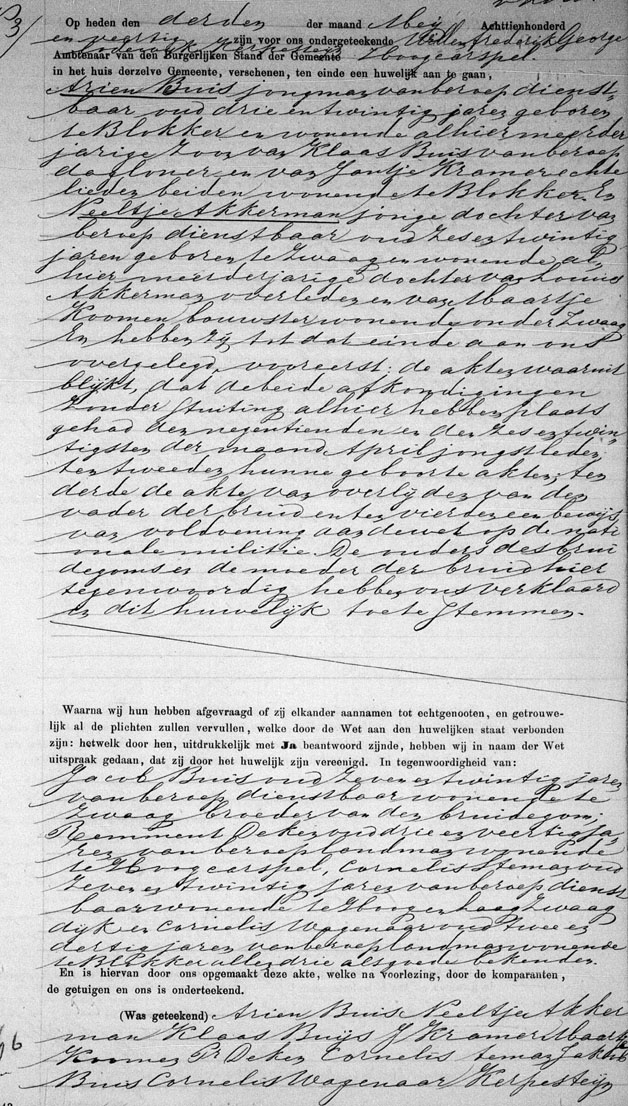 Op heden den derden der maand Mey Achttienhonderd
en veertig zijn voor ons ondergeteekende Willem Frederik George
Lodewijk Kerpesteijn Hoogcarspel.
Ambtenaar van den Burgerlijken Stand der Gemeente
in het huis derzelve Gemeente, verschenen, ten einde een huwelijk aan te gaan,
Arien Buis jongman van beroep dienst-
baar oud drie en twintig jaren geboren
te Blokker en wonende alhier meerder
jarige Zoon van Klaas Buis van beroep
dagloner en van Jantje Kramer echte
lieden beiden wonende te Blokker. En
Neeltje Akkerman jonge dochter van
beroep dienstbaar oud Zes en twintig
jaren geboren te Zwaag en wonende al,
hier meerderjarige dochter van Louris
Akkerman overleden en van Maartje
Koomen bouwster wonende onder Zwaag
En hebben zij tot dat einde aan ons
overgelegd, vooreerst: de akten waaruit
blijkt, dat de beide afkondigingen
Zonder Stuiting alhier hebben plaats
gehad den negentienden en den Zes en twin-
tigsten der maand April jongstleden;
ten tweeden hunne geboorte akten; ten
derde de akte van overlijden van den
vader der bruid en ten vierden een bewijs
van voldoening aan de wet op de nati
onale militie. De ouders des brui
degoms en de moeder der bruid hier
tegenwoordig hebben ons verklaard
in dit huwelijk toe te Stemmen.
Waarna wij hun hebben afgevraagd of zij elkander aannamen tot echtgenooten, en getrouwe-
lijk al de plichten zullen vervullen, welke door de Wet aan den huwelijken staat verbonden
zijn: hetwelk door hen, uitdrukkelijk met Ja beantwoord zijnde, hebben wij in naam der Wet
uitspraak gedaan, dat zij door het huwelijk zijn vereenigd. In tegenwoordigheid van:
Jacob Buis oud Zeven en twintig jaren
van beroep dienstbaar wonende te
Zwaag broeder van den bruidegom,
Remment Deken oud drie en veertig ja,
ren van beroep landman wonende
te Hoogcarspel, Cornelis Steman oud
Zeven en twintig jaren van beroep dienst
baar wonende te Hoog en laag Zwaag
dijk en Cornelis Wagenaar oud twee en
dertig jaren van beroep landman wonende
te Blokker alle drie als goede bekenden.
En is hiervan door ons opgemaakt deze akte, welke na voorlezing, door de komparanten,
de getuigen en ons is onderteekend.
(Was geteekend) Arien Buis Neeltje Akker
man Klaas Buijs J Kramer Maartje
Koomen Rt Deken Cornelis teman Jakob
Buis Cornelis Wagenaar Kerpesteijn